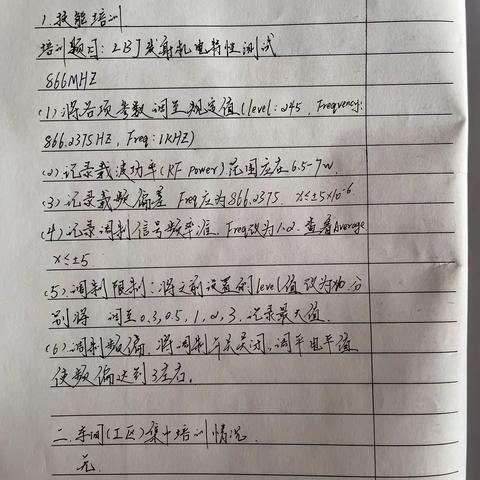 1.技能培训.
培训题目: LBJ发射机电特性测试
866MHZ
(1)将各项参数调至规定值(level:245, Frequency:
866.2375HZ, Freq:1KHZ)
(2)记录载波功率(RF Power)范围应在6.5-7w.
(3)记录载频偏差 Freq应为866.2375. x≤±5×10-6
(4)记录调制信号频率准. Freq改为1.2. 查看Average
x≤±5
(5)调制限制:将之前设置的level值改为10分
别将 调至0.3,0.5,1,2,3.记录最大值.
(6)调制频偏.将调制开关关闭,调平电平值
使频偏达到3左右。
二.车间(工区)集中培训情况.
无.